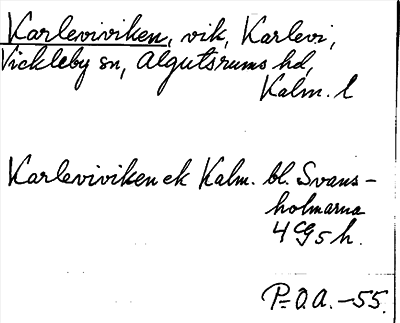 Karleviviken, vik, Karlevi,
Vickleby sn, Algutsrums hd,
Kalm. l
Karleviviken ek Kalm. bl. Svans-
holmarna
4G5h.
P=O.A. -55.